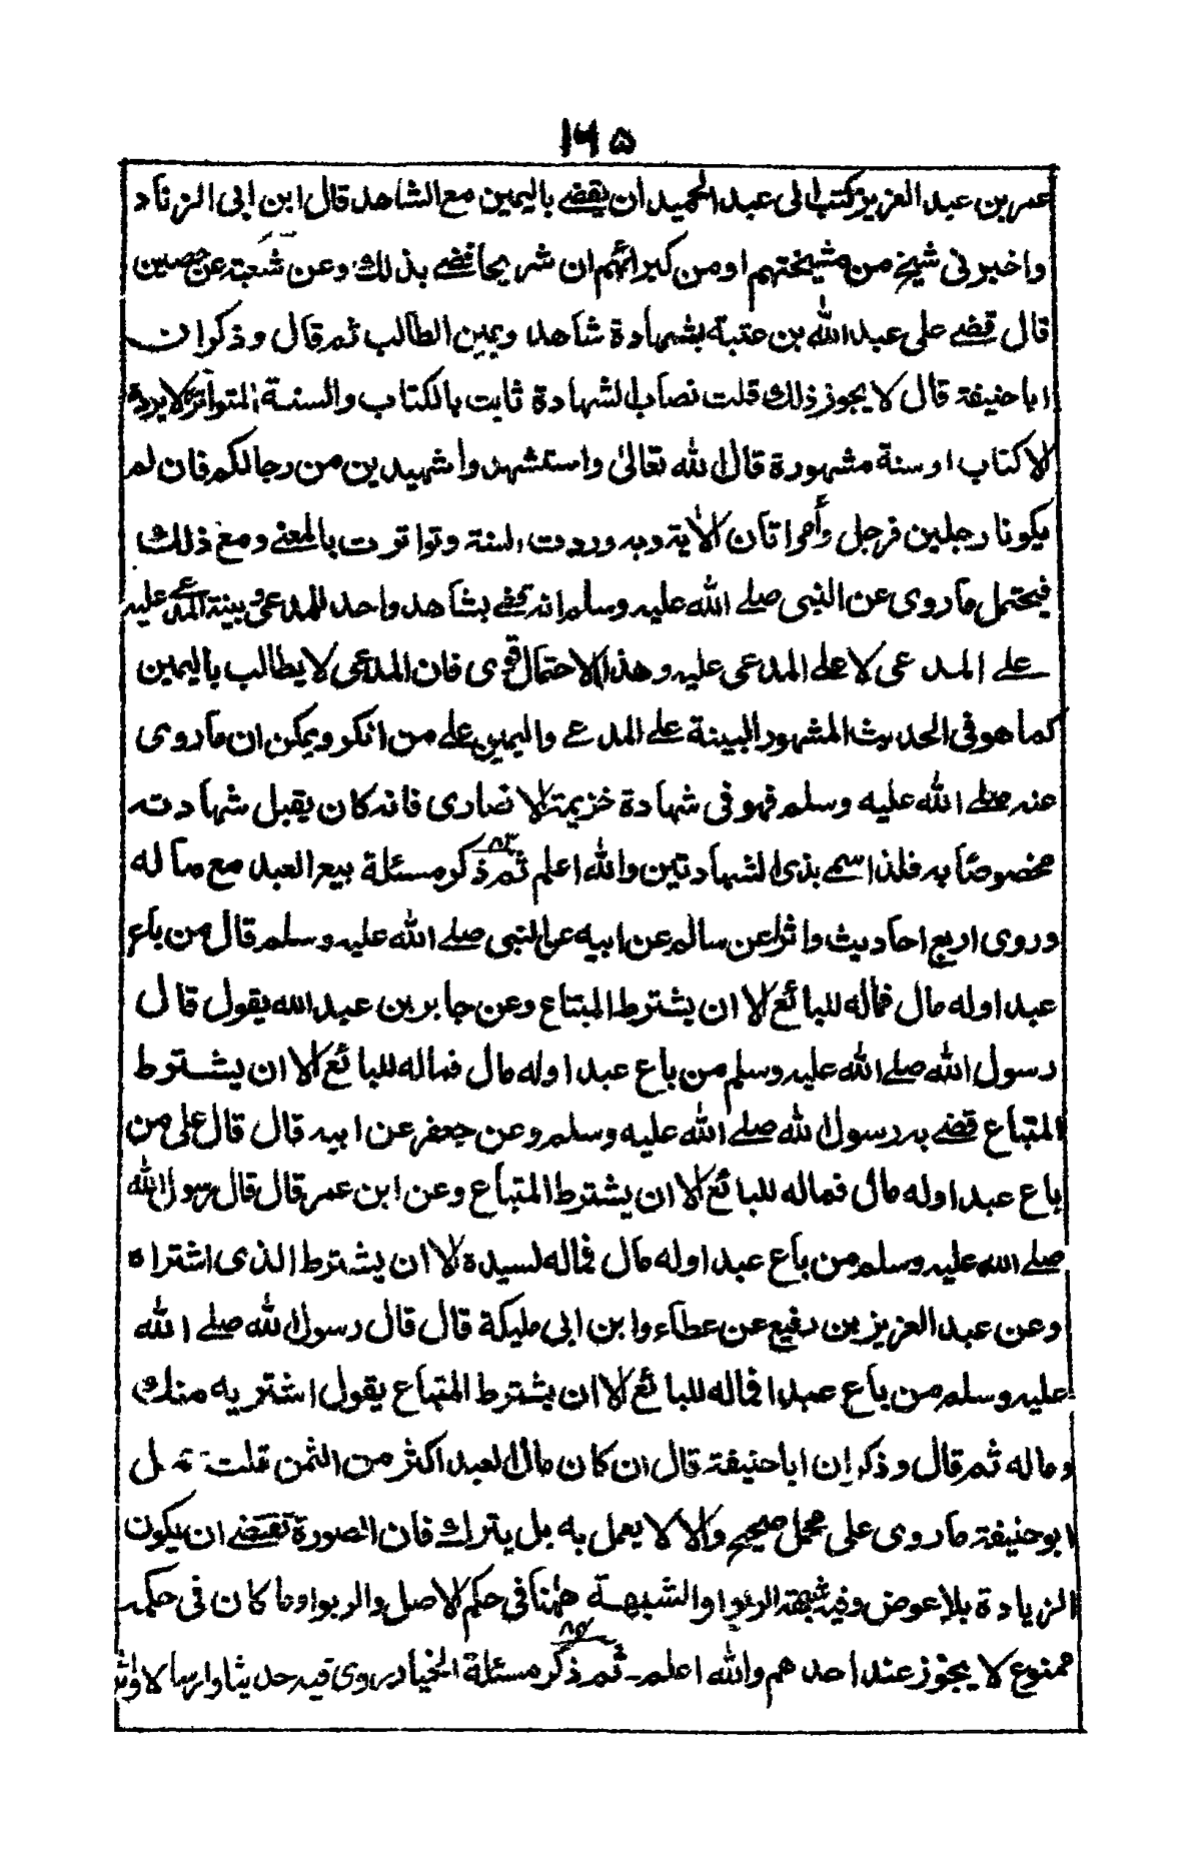 ١٦٥
عمر بن عبد العزيز كتب الى عبد الحميد ان يقضے باليمين مع الشاهد قال ابن ابى الزناد
واخبرنى شيخ من مشيختهم او من كبرائهم ان شريحا قضے بذلك وعن شعبة عن حصين
قال قضے على عبد الله بن عتبة بشهادة شاهد ويمين الطالب ثم قال وذكر ان
ابا حنيفة قال لا يجوز ذلك قلت نصاب الشهادة ثابت بالكتاب والسنة المتواتر لا يرده
الا كتاب او سنة مشهورة قال الله تعالىٰ واستشهدوا شهيدين من رجالكم فان لم
يكونا رجلين فرجل وأمراتان الاٰية وبه وردت السنة وتواترت بالمعنے ومع ذلك
فيحتمل ما روى عن النبى صلے الله عليه وسلم انه قضے بشاهد واحد للمدعى وبينة المدعے عليه
علے المدعى لا علے المدعى عليه وهذا الاحتمال قوى فان المدعى لا يطالب باليمين
كما هو فى الحديث المشهور البينة علے المدعے واليمين علے من انكر ويمكن ان ما روى
عنه صلے الله عليه وسلم فهو فى شهادة خزيمة الانصارى فانه كان يقبل شهادته
مخصوصًا به فلذا سمے بذى الشهادتين والله اعلم ثم ذكر مسئلة بيع العبد مع ماله
وروى اربع احاديث واثرا عن سالم عن ابيه عن النبى صلے الله عليه وسلم قال من باع
عبدا وله مال فماله للبائع الا ان يشترط المبتاع وعن جابر بن عبد الله يقول قال
رسول الله صلے الله عليه وسلم من باع عبدا وله مال فماله للبائع الا ان يشترط
المتباع قضے به رسول الله صلے الله عليه وسلم وعن جعفر عن ابيه قال قال على من
باع عبدا وله مال فماله للبائع الا ان يشترط المتباع وعن ابن عمر قال قال رسول الله
صلے الله عليه وسلم من باع عبدا وله مال فماله لسيده الا ان يشترط الذى اشتراه
وعن عبد العزيز بن رفيع عن عطاء وابن ابى مليكة قال قال رسول الله صلے الله
عليه وسلم من باع عبدا فماله للبائع الا ان يشترط المتباع يقول اشتريه منك
وماله ثم قال وذكر ان ابا حنيفة قال ان كان مال العبد اكثر من الثمن قلت حمل
ابو حنيفة ما روى على محمل صحيح والا لا يعمل به بل يترك فان الصورة تقتضے ان يكون
الزيادة بلا عوض وفيه شبهة الربوا والشبهة هٰهنا فى حكم الاصل والربوا وما كان فى حكمه
ممنوع لا يجوز عند احدهم والله اعلم ـ ثم ذكر مسئلة الخيار روى فيه حديثا واربعا